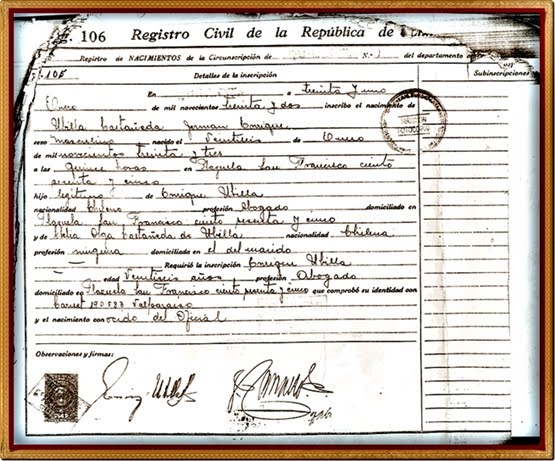 106 Registro Civil de la República de
Registro de NACIMIENTOS de la Circunscripción de N.º 1 del departamento
105 Detalles de la inscripción Subinscripciones
En a treinta y uno
Enero de mil novecientos treinta y dos inscribo el nacimiento de
Ubilla Castañeda Germán Enrique
sexo masculino nacido el Veintiseis de Enero
de mil novecientos treinta y tres
a las quince horas en Plazuela San Francisco ciento
sesenta y cinco
hijo legítimo de Enrique Ubilla
nacionalidad Chileno profesión Abogado domiciliado en
Plazuela San Francisco ciento sesenta y cinco
y de Olga Castañeda de Ubilla nacionalidad Chilena
profesión ninguna domiciliada en el del marido
Requirió la inscripción Enrique Ubilla
edad Veintiseis años profesión Abogado
domiciliado en Plazuela San Francisco ciento sesenta y cinco que comprobó su identidad con
Carnet 190.527 Valparaiso
y el nacimiento conocido del Oficial
Observaciones y firmas: